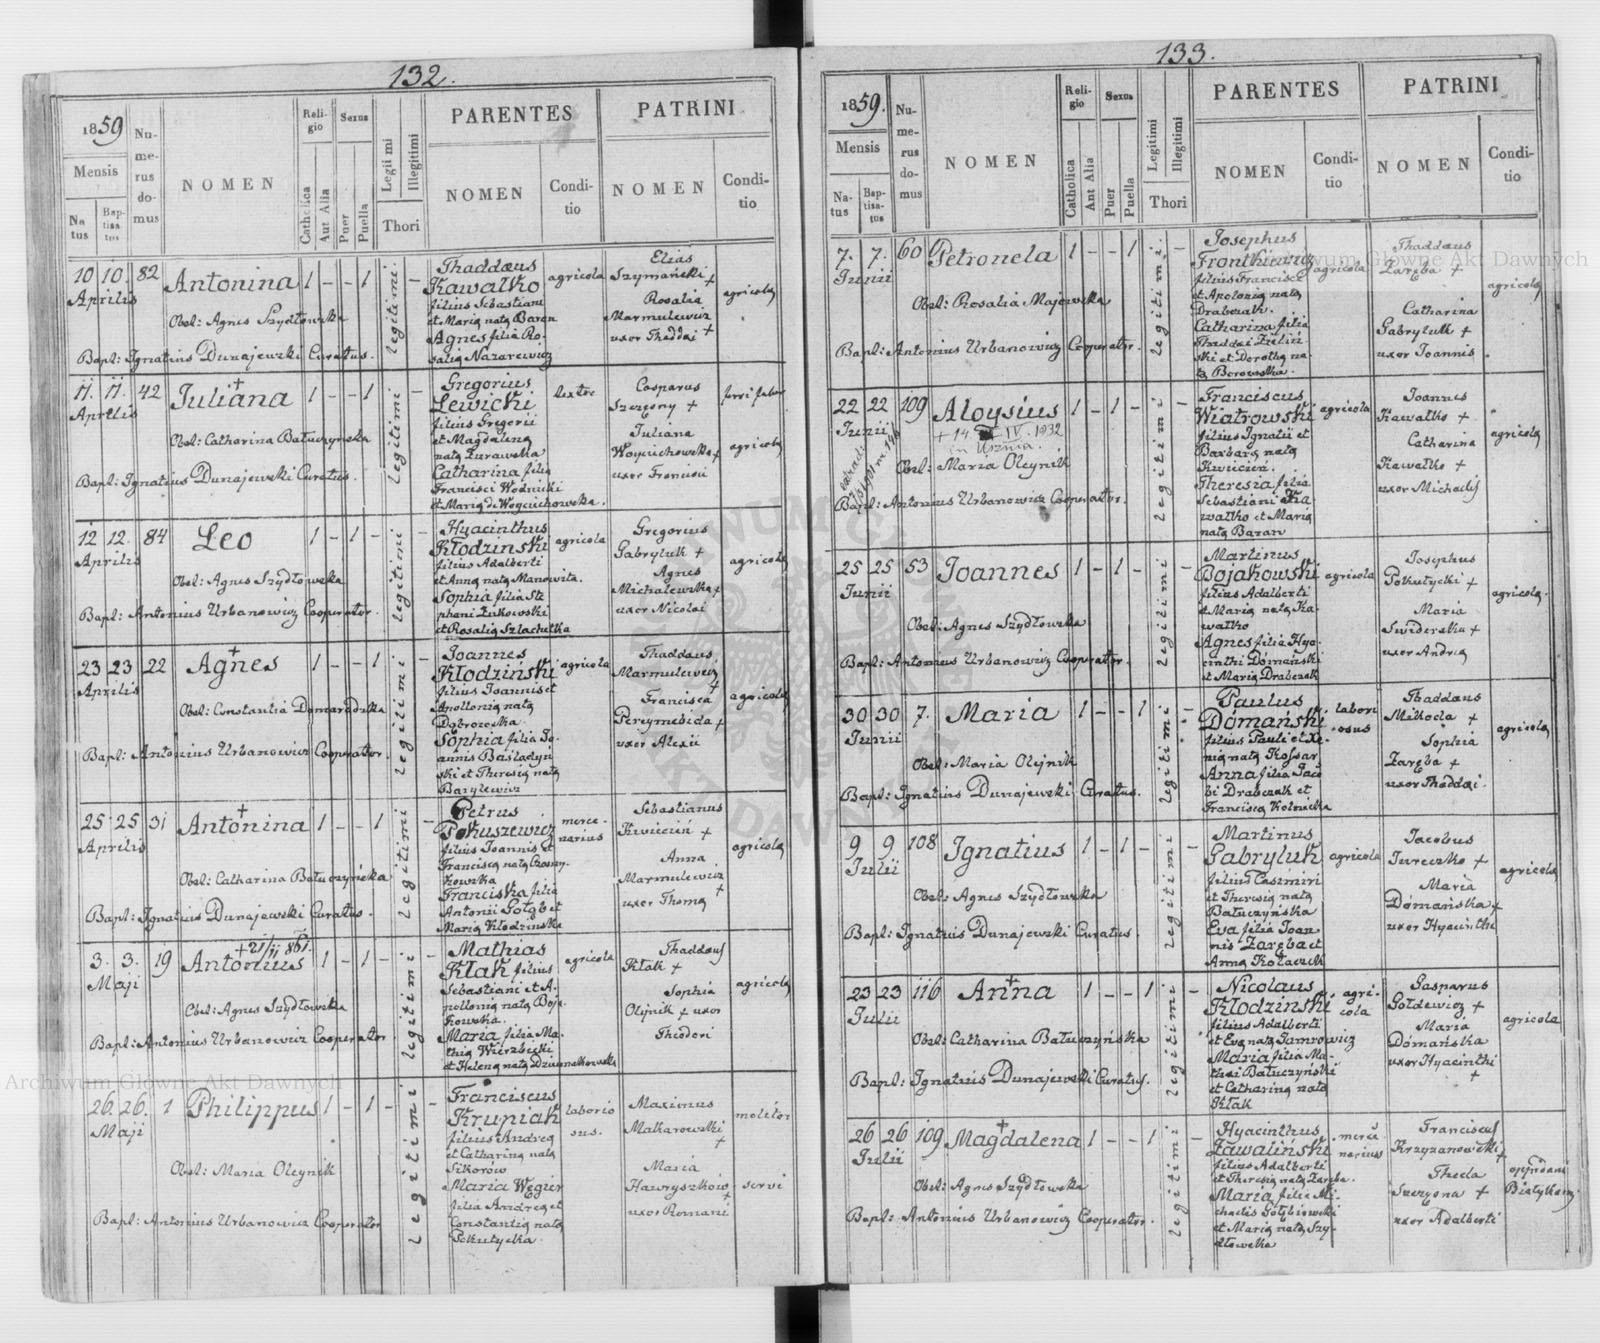 132.
1859
Mensis
Na
tus
Bap-
tisa-
tus
Nu-
me-
rus
do-
mus
NOMEN
Reli-
gio
Catholica
Aut Alia
Sexus
Puer
Puella
Legiti mi
Illegitimi
Thori
PARENTES
NOMEN
Condi-
tio
PATRINI
NOMEN
Condi-
tio
10 10. 82 Antonina 1 - - 1 legitimi -
Aprilis
Obst: Agnes Szydłowska
Bapt: Ignatius Dunajewski Curatus.
Thaddæus
Kawałko
filius Sebastiani
et Maria nata Baran
Agnes filia Ro-
salia Nazarewicz
agricola
Elias
Szymański +
Rosalia
Marmulewicz
uxor Thaddei +
agricola
11. 11. 42 Juliana + 1 - - 1 legitimi -
Aprilis
Obst: Catharina Bałuczyńska
Bapt: Ignatius Dunajewski Curatus.
Gregorius
Lewicki
filius Gregorii
et Magdalena
nata Żurawska
Catharina filia
Francisci Wodnicki
et Maria de Woyciuchowska.
textor
Casparus
Szczęsny +
Juliana
Woyciuchowska +
uxor Francisci
ferri faber
agricola
12 12. 84 Leo 1 - 1 - legitimi -
Aprilis
Obst: Agnes Szydłowska
Bapt: Antonius Urbanowicz Cooperator.
Hyacinthus
Kłodzinski
filius Adalberti
et Anna nata Manowita.
Sophia filia Ste
phani Żukowski
et Rosalia Szlachetka
agricola
Gregorius
Gabryluk +
Agnes
Michalewska +
uxor Nicolai
agricola
23 23 22 Agnes + 1 - - 1 legitimi -
Aprilis
Obst: Constantia Domaradzka
Bapt: Antonius Urbanowicz Cooperator.
Joannes
Kłodziński
filius Joannis et
Apollonia nata
Dobrowska
Sophia filia Jo-
annis Basladyń
ski et Theresia nata
Barylewicz
agricola
Thaddaus
Marmulewicz
+
Francisca
Pereymebida +
uxor Alexii
agricola
25 25 31 Antonina + 1 - - 1 legitimi -
Aprilis
Obst: Catharina Bałuczyńska
Bapt: Ignatius Dunajewski Curatus.
Petrus
Pokuszewicz
filius Joannis et
Francisca nata
kowska
Franciska filia
Antonii Gołąb et
Maria Kłodzinska
merce-
narius
Sebastianus
Kwiecień +
Anna
Marmulewicz
uxor Thoma +
agricola
+ 21/II 861.
3. 3. 19 Antonius 1 - 1 - legitimi -
Maji
Obst: Agnes Szydłowska
Bapt: Antonius Urbanowicz Cooperator.
Mathias
Kłak filius
Sebastiani et A-
pollonia nata Boja
kowska.
Maria filia Ma-
thia Wierzbicki
et Helena nata
agricola
Thaddaus
Kłak +
Sophia
Olijnik + uxor
Theodori
agricola
26. 26. 1 Philippus 1 - 1 - legitimi -
Maji
Obst: Maria Oleynik
Bapt: Antonius Urbanowicz Cooperator
Franciscus
Krupiak
filius Andrea
et Catharina nata
Sikorów
Maria Węgier
filia Andrea et
Constantia nata
Pokutycka.
laborio
sus.
Maximus
Makarowski
+
Maria
Hawryszków +
uxor Romani
molitor
servi
133.
1859.
Mensis
Na-
tus
Bap-
tisa-
tus
Nu-
me-
rus
do-
mus
NOMEN
Reli-
gio
Catholica
Aut Alia
Sexus
Puer
Puella
Legitimi
Illegitimi
Thori
PARENTES
NOMEN
Condi-
tio
PATRINI
NOMEN
Condi-
tio
7. 7. 60 Petronela 1 - - 1 legitimi. -
Junii
Obst: Rosalia Majewska
Bapt: Antonius Urbanowicz Cooperator.
Josephus
Fronthiewicz
filius Francisci
et Apolonia nata
Drabczak.
Catharina filia
Thaddei Zieliń
ski et Dorotha na
ta Borowska.
agricola
Thaddæus
Zaręba +
Catharina
Gabryluk +
uxor Joannis.
agricola
22 22 109 Aloysius 1 - 1 - legitimi -
Junii
+ 14 IV. 1932
in Usznia.
Obst: Maria Oleynik
Bapt: Antonius Urbanowicz Cooperator.
Franciscus
Wiatrowski
filius Ignatii et
Barbara nata
Kwicień.
Theresia filia
Sebastiani Ka
wałko et Maria
nata Baran
agricola
Joannes
Kawałko +
Catharina
Kawałko +
uxor Michaelis
agricola
25 25 53 Joannes 1 - 1 - legitimi -
Junii
Obst: Agnes Szydłowska
Bapt: Antonius Urbanowicz Cooperator.
Martinus
Bojakowski
filius Adalberti
et Maria nata Ka-
wałko
Agnes filia Hya-
cinthi Domański
et Maria Drabczak
agricola
Josephus
Pokutycki +
Maria
Swiderska +
uxor Andrea
agricola.
30 30 7. Maria 1 - - 1 legitimi -
Junii
Obst: Maria Olijnik
Bapt: Ignatius Dunajewski Curatus.
Paulus
Domański
filius Pauli et Xe-
nia nata Kossar
Anna filia Jaco
bi Drabczak et
Francisca Kolnicka
labori
osus
Thaddaus
Mikocla +
Sophia
Zaręba +
uxor Thaddai.
agricola
9 9 108 Ignatius 1 - 1 - legitimi -
Julii
Obst: Agnes Szydłowska
Bapt: Ignatius Dunajewski Curatus.
Martinus
Gabryluk
filius Casimiri
et Theresia nata
Bałuczyńska
Eva filia Joan
nis Zaręba et
Anna Kołaczek
agricola
Jacobus
Jureczko +
Maria
Domańska +
uxor Hyacinthi
agricola
23 23 116 Anna + 1 - - 1 legitimi -
Julii
Obst: Catharina Bałuczyńska
Bapt: Ignatius Dunajewski Curatus.
Nicolaus
Kłodzinski
filius Adalberti
et Eva nata Jamrowicz
Maria filia Ma-
thæi Bałuczyński
et Catharina nata
Kłak
agri-
cola
Gasparus
Gołdewicz +
Maria
Domańska
uxor Hyacinthi
+
agricola
26 26 109 Magdalena + 1 - - 1 legitimi -
Julii
Obst: Agnes Szydłowska
Bapt: Antonius Urbanowicz Cooperator.
Hyacinthus
Zawaliński
filius Adalberti
et Theresia nata Zaręba.
Maria filia Mi-
chaelis Gołębiowski
et Maria nata Szy-
dłowska
merce
narius
Franciscus
Krzyzanowski +
Thecla
Szczęsna +
uxor Adalberti
oppidani
Białykam.
Archiwum Główne Akt Dawnych
Archiwum Główne Akt Dawnych